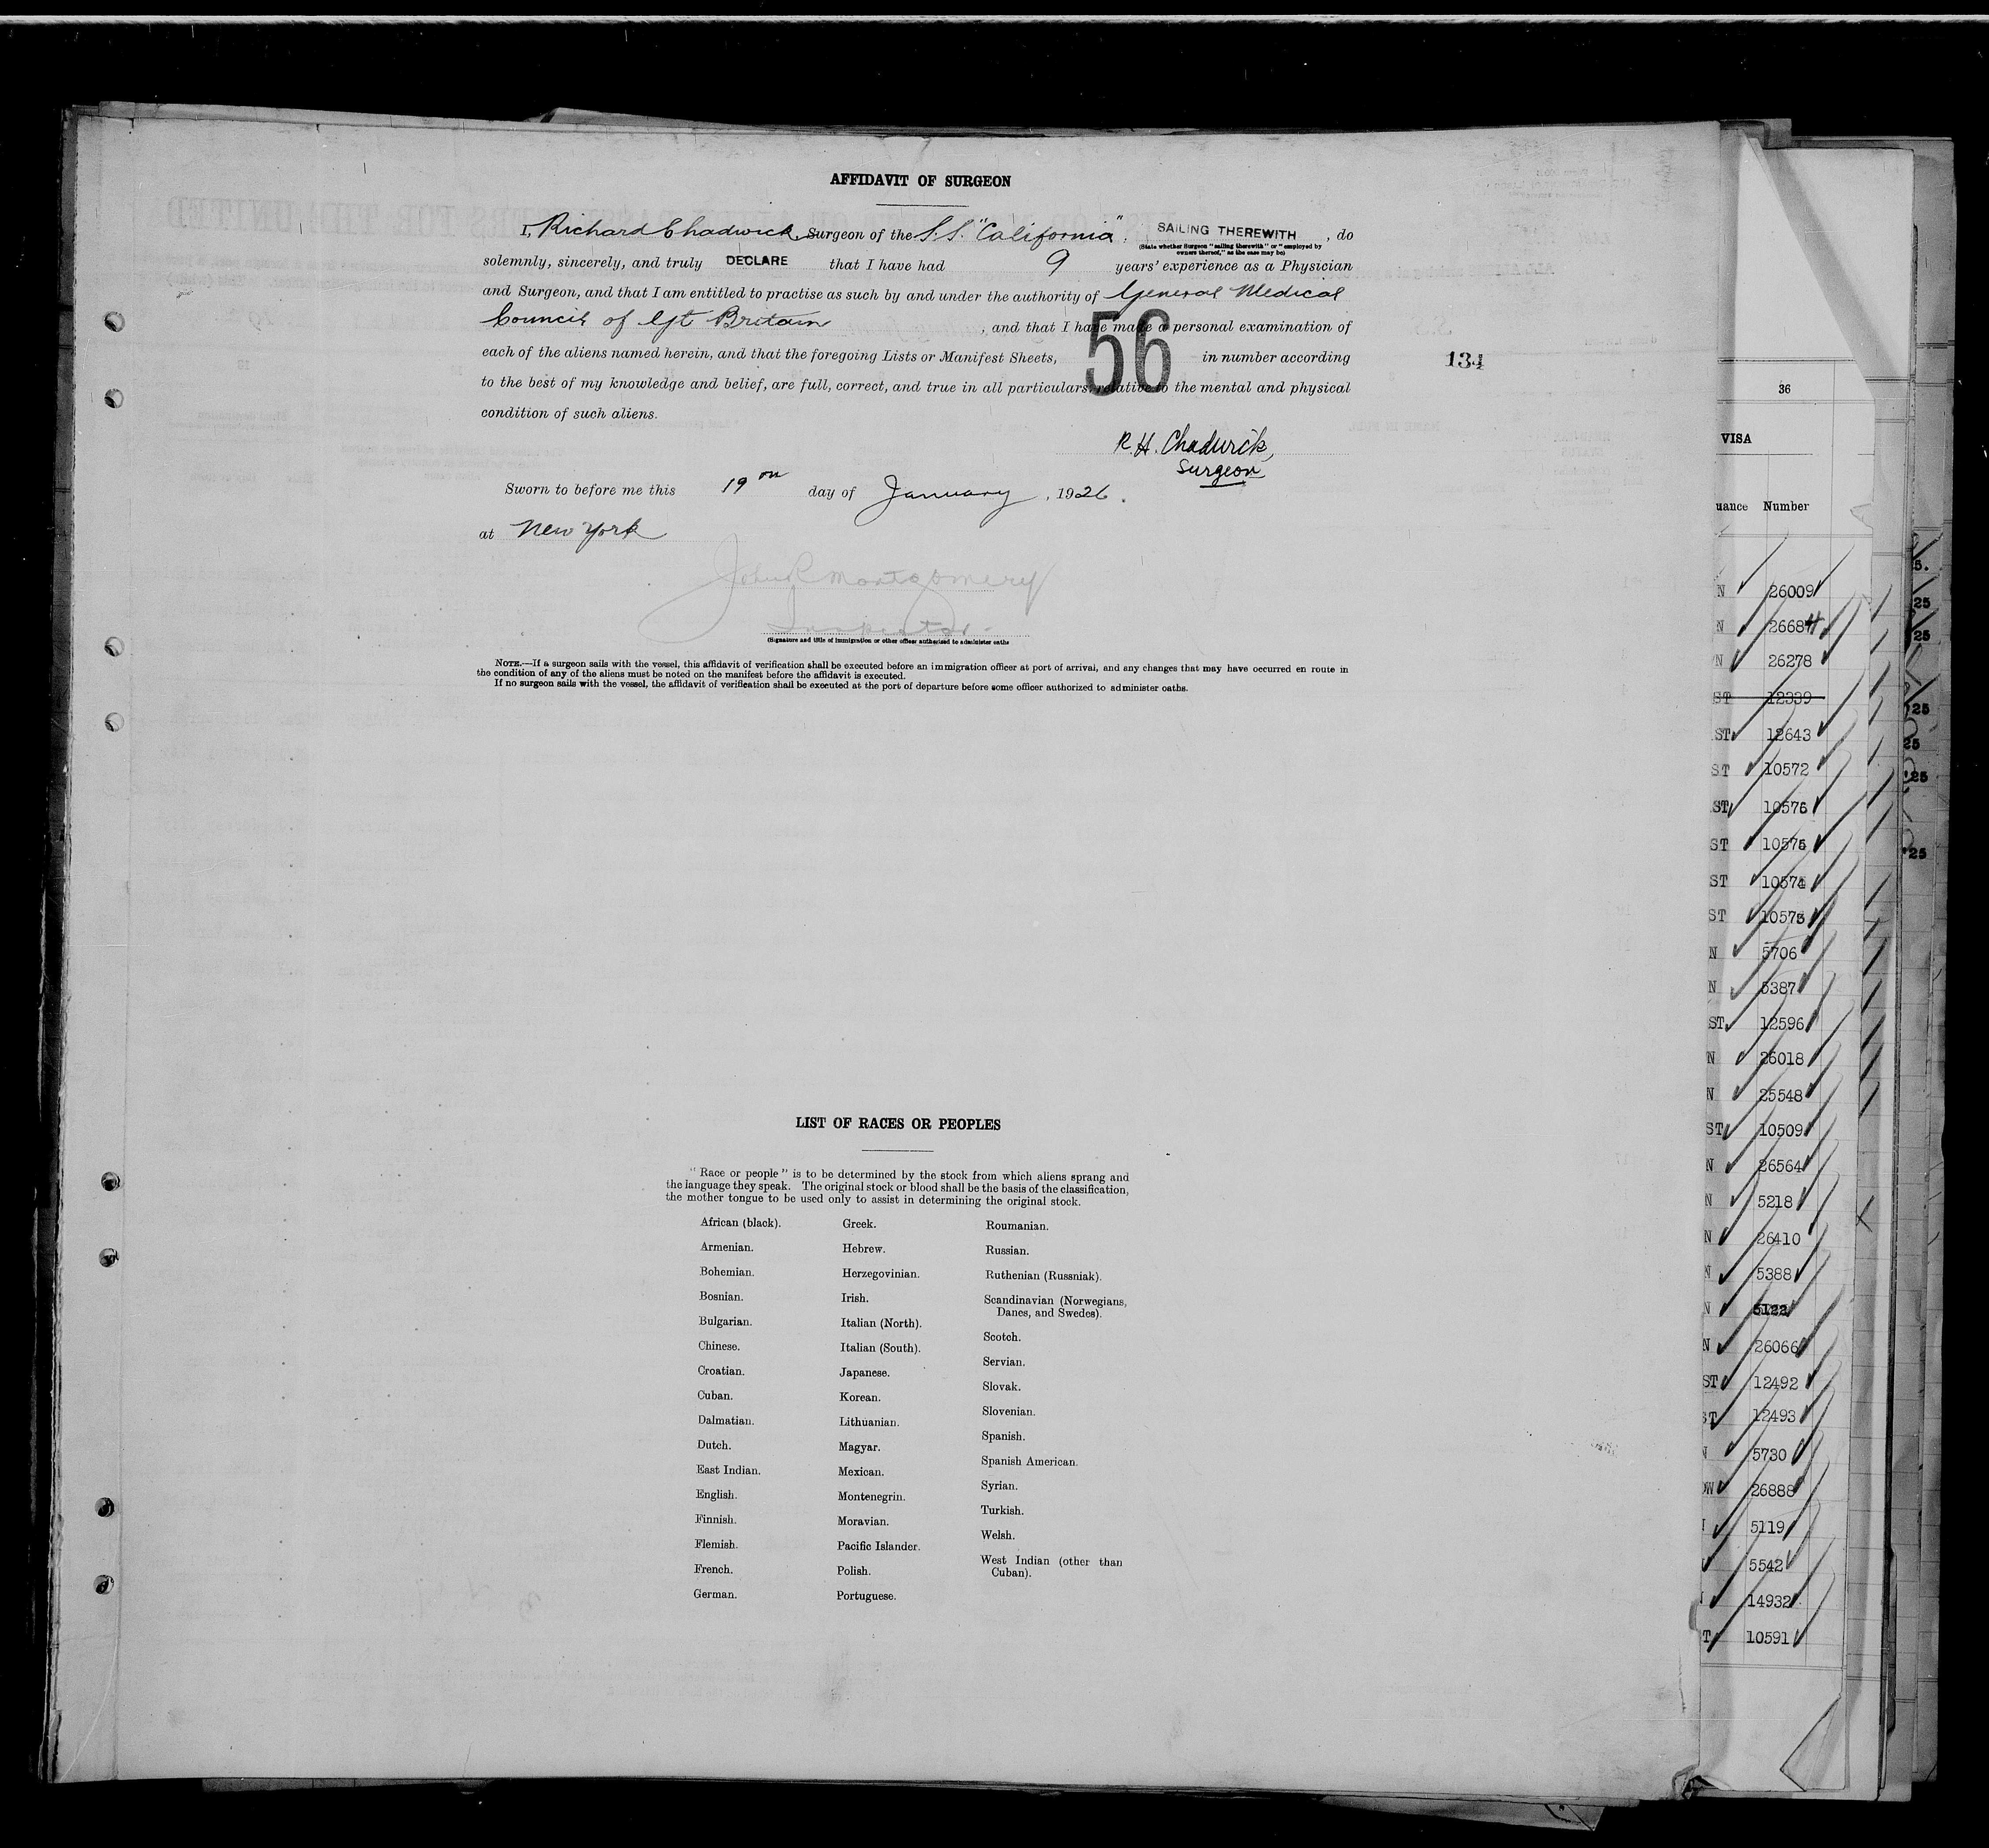 AFFIDAVIT OF SURGEON
I, Richard Chadwick, Surgeon of the S.S. "California", SAILING THEREWITH, do
(State whether Surgeon "sailing therewith" or "employed by
owners thereof," as the case may be)
solemnly, sincerely, and truly DECLARE that I have had 9 years' experience as a Physician
and Surgeon, and that I am entitled to practise as such by and under the authority of General Medical
Council of Gt Britain, and that I have made a personal examination of
each of the aliens named herein, and that the foregoing Lists or Manifest Sheets, 56 in number according
134
to the best of my knowledge and belief, are full, correct, and true in all particulars, relative to the mental and physical
condition of such aliens.
R. H. Chadwick,
Surgeon
Sworn to before me this 19 day of January, 1926.
at New York
John R Montgomery
Inspector
(Signature and title of immigration or other officer authorized to administer oaths
NOTE.—If a surgeon sails with the vessel, this affidavit of verification shall be executed before an immigration officer at port of arrival, and any changes that may have occurred en route in
the condition of any of the aliens must be noted on the manifest before the affidavit is executed.
If no surgeon sails with the vessel, the affidavit of verification shall be executed at the port of departure before some officer authorized to administer oaths.
LIST OF RACES OR PEOPLES
"Race or people" is to be determined by the stock from which aliens sprang and
the language they speak. The original stock or blood shall be the basis of the classification,
the mother tongue to be used only to assist in determining the original stock.
African (black).
Armenian.
Bohemian.
Bosnian.
Bulgarian.
Chinese.
Croatian.
Cuban.
Dalmatian.
Dutch.
East Indian.
English.
Finnish.
Flemish.
French.
German.
Greek.
Hebrew.
Herzegovinian.
Irish.
Italian (North).
Italian (South).
Japanese.
Korean.
Lithuanian.
Magyar.
Mexican.
Montenegrin.
Moravian.
Pacific Islander.
Polish.
Portuguese.
Roumanian.
Russian.
Ruthenian (Russniak).
Scandinavian (Norwegians,
Danes, and Swedes).
Scotch.
Servian.
Slovak.
Slovenian.
Spanish.
Spanish American.
Syrian.
Turkish.
Welsh.
West Indian (other than
Cuban).
36
VISA
uance Number
N 26009
N 26684
N 26278
ST 12339
ST 12643
ST 10572
ST 10576
ST 10575
ST 10574
ST 10573
N 5706
N 5387
ST 12596
N 26018
N 25548
ST 10509
N 26564
N 5218
N 26410
N 5388
N 5122
N 26066
ST 12492
ST 12493
N 5730
OW 26888
5119
5542
14932
T 10591
5.
25
25
25
25
'25
'25